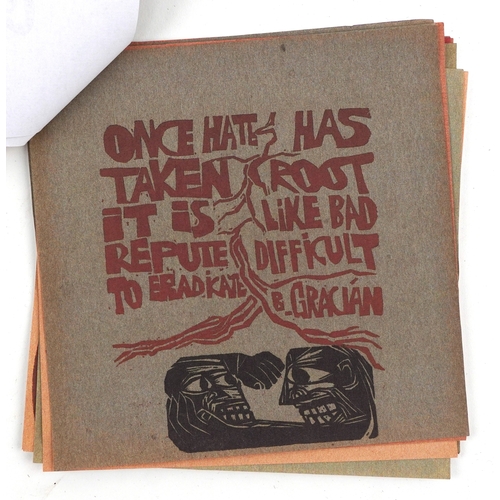 ONCE HATE HAS
TAKEN ROOT
iT iS LiKE BAD
REPUTE DIFFICULT
TO ERADIKATE
B_GRACIÁN